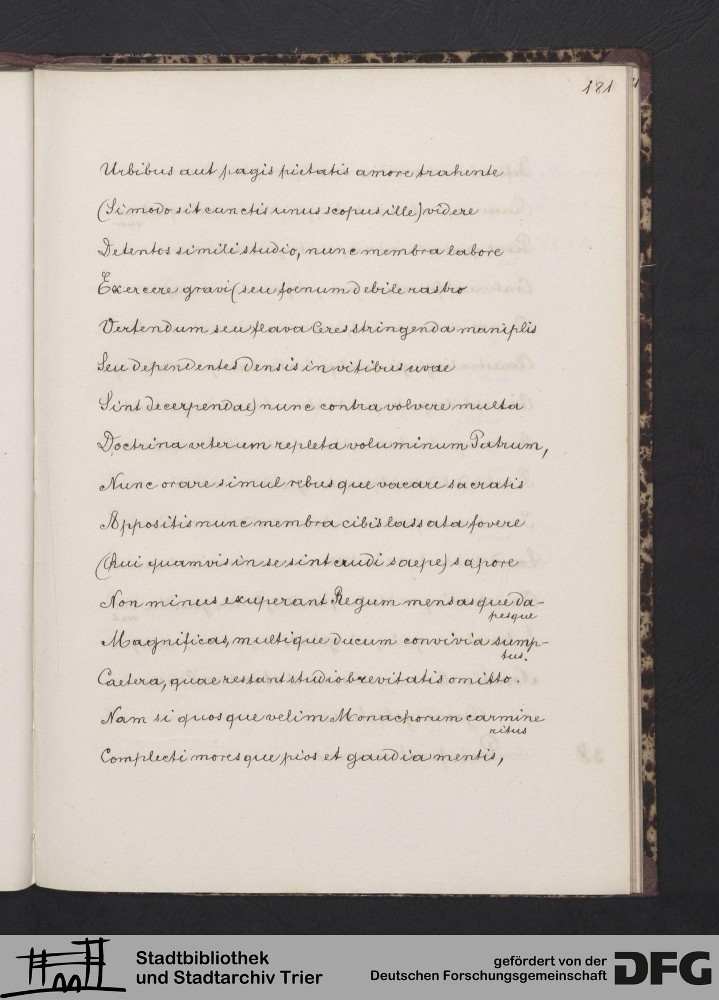 181
Urbibus aut pagis pietatis amore trahente
(Si modo sit cunctis unus scopus ille) videre
Detentos simili studio, nunc membra labore
Exercere gravi (seu foenum debile rastro
Vertendum seu flava Ceres stringenda maniplis
Seu dependentes densis in vitibus uvae
Sint decerpendae) nunc contra volvere multa
Doctrina veterum repleta voluminum Patrum,
Nunc orare simul rebusque vacare sacratis
Appositis nunc membra cibis lassata fovere
(Qui quamvis in se sint crudi saepe) sapore
Non minus exuperant Regum mensasque da-
pesque
Magnificas, multique ducum convivia sump-
tus.
Caetera, quae restant studio brevitatis omitto.
Nam si quosque velim Monachorum carmine
ritus
Complecti moresque pios et gaudia mentis,
Stadtbibliothek
und Stadtarchiv Trier
gefördert von der
Deutschen Forschungsgemeinschaft
DFG